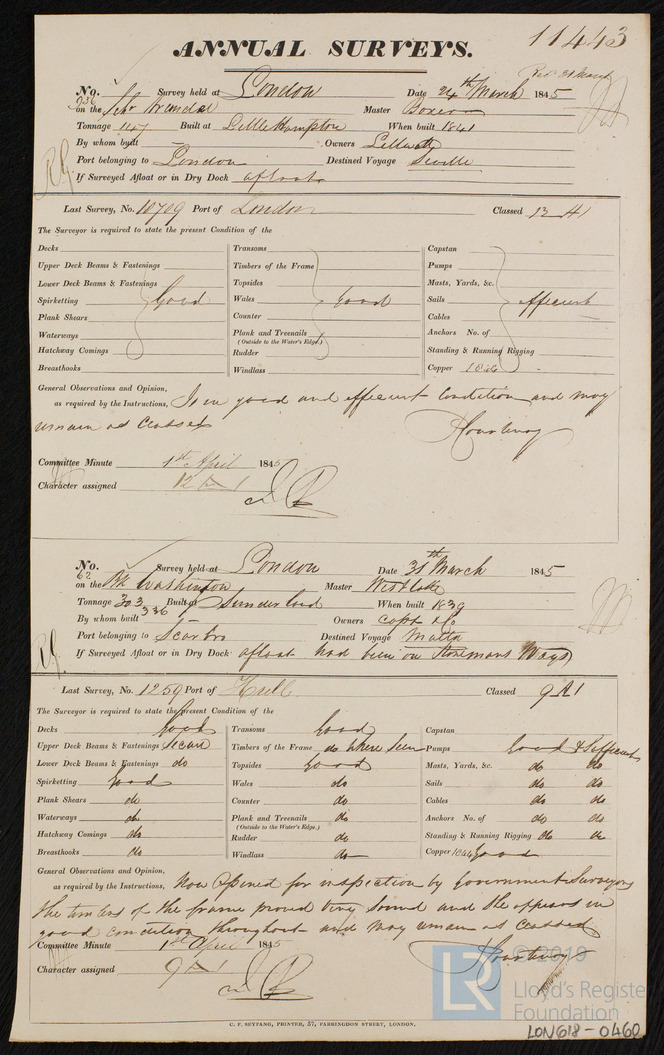 11443
ANNUAL SURVEYS.
No. Survey held at London Date 24th March 1845
on the Schr Master Boxer
Tonnage 147 Built at Little Hampton When built 1841
By whom built Owners
Port belonging to London Destined Voyage Seville
If Surveyed Afloat or in Dry Dock afloat
Last Survey, No. 10709 Port of London Classed 12 A1
The Surveyor is required to state the present Condition of the
Decks Transoms Capstan
Upper Deck Beams & Fastenings Timbers of the Frame Pumps
Lower Deck Beams & Fastenings Topsides Masts, Yards, &c.
Spirketting Good Wales Good Sails efficient
Plank Shears Counter Cables
Waterways Plank and Treenails Anchors No. of
(Outside to the Water's Edge.)
Hatchway Comings Rudder Standing & Running Rigging
Breasthooks Windlass Copper
General Observations and Opinion,
as required by the Instructions, Is in good and efficient condition and may
remain as classed
Committee Minute 1st April 1845
Character assigned 12 A 1
No. Survey held at London Date 31th March 1845
62
on the Bk Washington Master Westlake
Tonnage 303 Built at Sunderland When built 1839
336
By whom built – Owners Capt &c
Port belonging to Scarbro Destined Voyage Malta
If Surveyed Afloat or in Dry Dock afloat had been on Ways
Last Survey, No. 1259 Port of Hull Classed 9 A1
The Surveyor is required to state the present Condition of the
Decks Good Transoms Good Capstan
Upper Deck Beams & Fastenings Timbers of the Frame do where seen Pumps Good & Sufficient
Lower Deck Beams & Fastenings do Topsides Good Masts, Yards, &c. do do
Spirketting Good Wales do Sails do do
Plank Shears do Counter do Cables do do
Waterways do Plank and Treenails do Anchors No. of do do
(Outside to the Water's Edge.)
Hatchway Comings do Rudder do Standing & Running Rigging do do
Breasthooks do Windlass do Copper good
General Observations and Opinion,
as required by the Instructions, Now opened for inspection by Government Surveyors
the timbers of the frame proved very sound and she appears in
good condition throughout and may remain as classed
Committee Minute 1st April 1845
Character assigned 9 A 1
C. F. SEYFANG, PRINTER, 57, FARRINGDON STREET, LONDON.
LR © 2019
Lloyd's Register
Foundation
LON618-0460